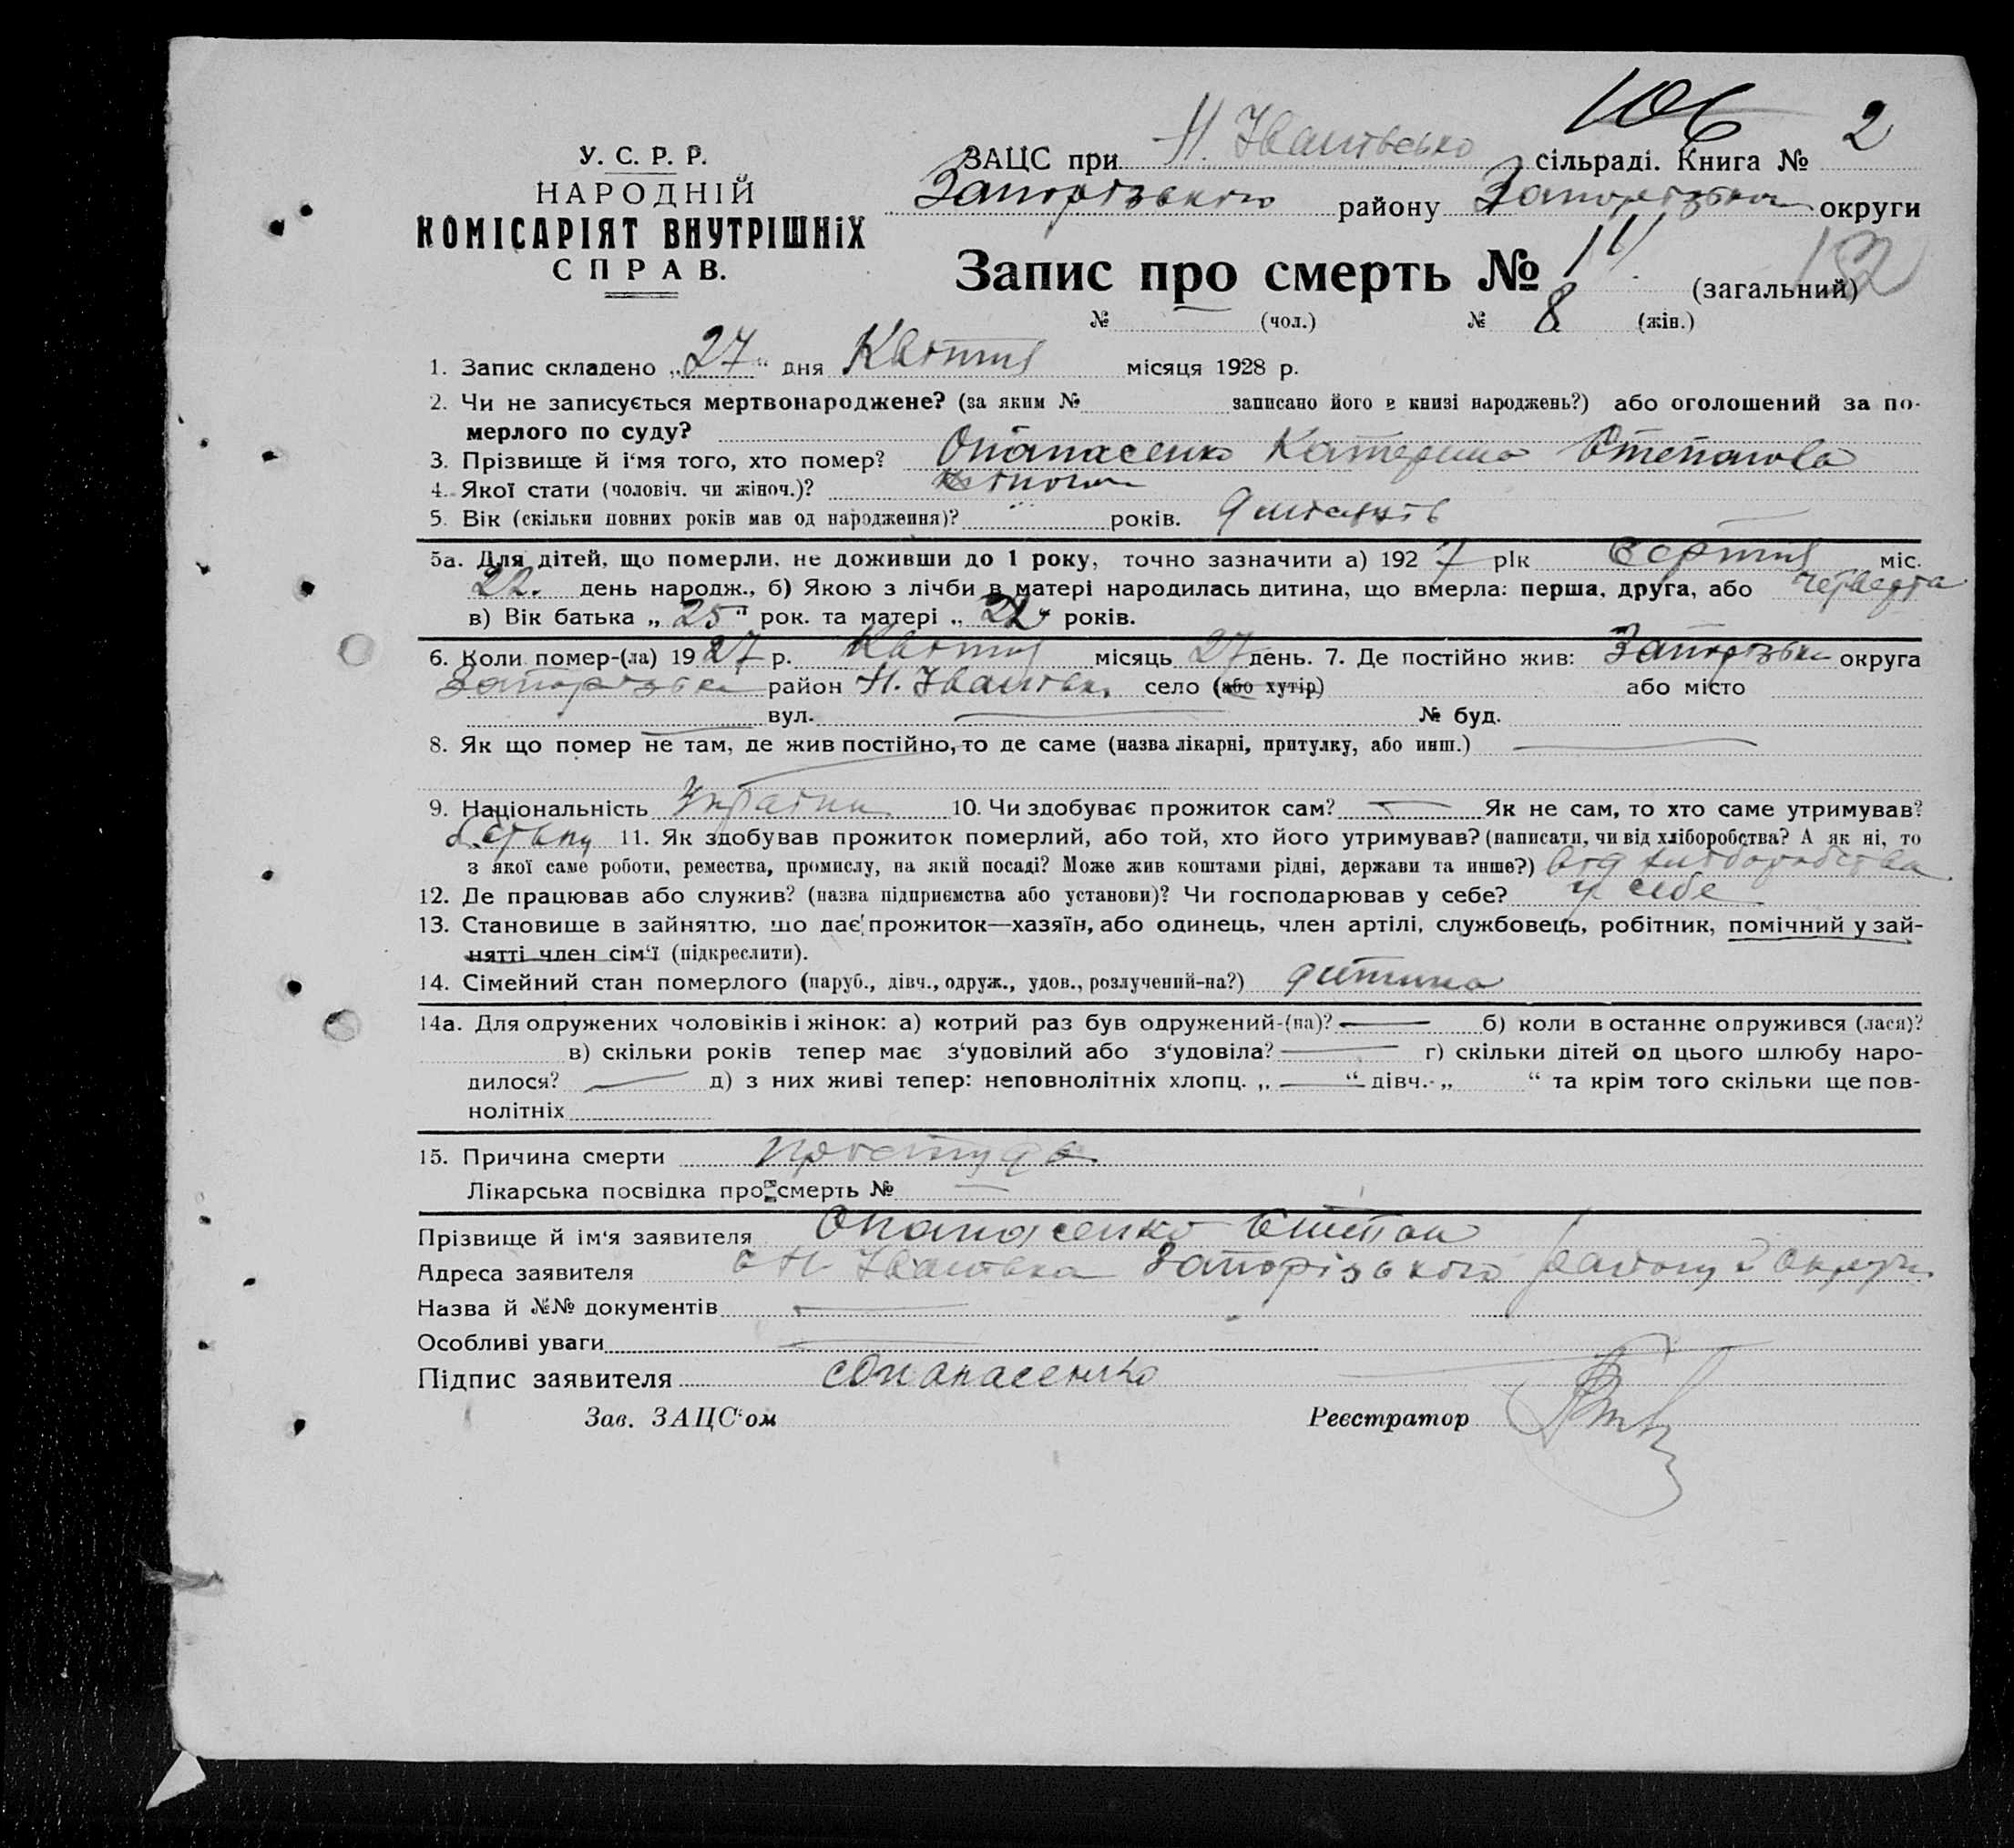 106
У. С. Р. Р.
НАРОДНІЙ
КОМІСАРІЯТ ВНУТРІШНІХ
СПРАВ.
ЗАЦС при Н. Іванівсько сільраді. Книга № 2
Запорізького району Запорізька округи
Запис про смерть № 11 (загальний) 182
№ — (чол.) № 8 (жін.)
1. Запис складено „27“ дня Квітня місяця 1928 р.
2. Чи не записується мертвонароджене? (за яким № записано його в книзі народжень?) або оголошений за по-
мерлого по суду?
3. Прізвище й і‘мя того, хто помер? Опанасенко Катерина Степанова
4. Якої статі (чоловіч. чи жіноч.)? жіноча
5. Вік (скільки повних років мав од народження)? років.
5а. Для дітей, що померли, не доживши до 1 року, точно зазначити а) 1927 рік Серпня міс.
22. день народж., б) Якою з лічби в матері народилась дитина, що вмерла: перша, друга, або четверта
в) Вік батька „25“ рок. та матері „ “ років.
6. Коли помер-(ла) 1927 р. Квітня місяць 27 день. 7. Де постійно жив: Запорізька округа
Запорізька район Н. Іванівка село (або хутір) або місто
вул. — № буд.
8. Як що помер не там, де жив постійно, то де саме (назва лікарні, притулку, або инш.) —
9. Національність Україн 10. Чи здобуває прожиток сам? — Як не сам, то хто саме утримував?
11. Як здобував прожиток померлий, або той, хто його утримував? (написати, чи від хліборобства? А як ні, то
з якої саме роботи, ремества, промислу, на якій посаді? Може жив коштами рідні, держави та инше?) від хліборобства
12. Де працював або служив? (назва підприємства або установи)? Чи господарював у себе? у себе
13. Становище в зайняттю, що дає прожиток—хазяїн, або одинець, член артілі, службовець, робітник, помічний у зай-
нятті член сім‘ї (підкреслити).
14. Сімейний стан померлого (паруб., дівч., одруж., удов., розлучений-на?) дитина
14а. Для одружених чоловіків і жінок: а) котрий раз був одружений-(на)? — б) коли в останнє одружився (лася)?
в) скільки років тепер має з‘удовілий або з‘удовіла? — г) скільки дітей од цього шлюбу наро-
дилося? — д) з них живі тепер: неповнолітніх хлопц. „—“ дівч.- „ “ та крім того скільки ще пов-
нолітніх
15. Причина смерти простуда
Лікарська посвідка про смерть № —
Прізвище й ім‘я заявителя Опанасенко Степан
Адреса заявителя с Н. Іванівка Запорізького району й округи
Назва й №№ документів —
Особливі уваги —
Підпис заявителя Опанасенко
Зав. ЗАЦС‘ом Реєстратор